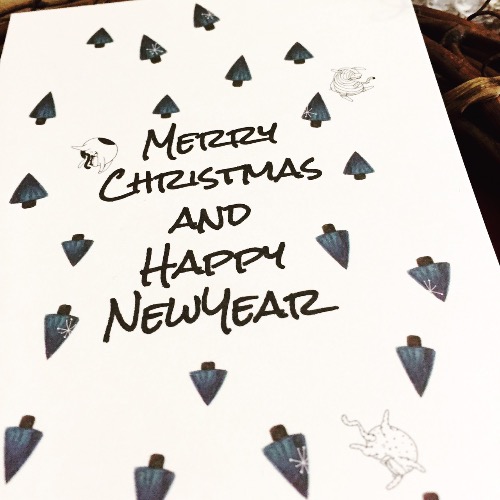 Merry
Christmas
and
Happy
NewYear